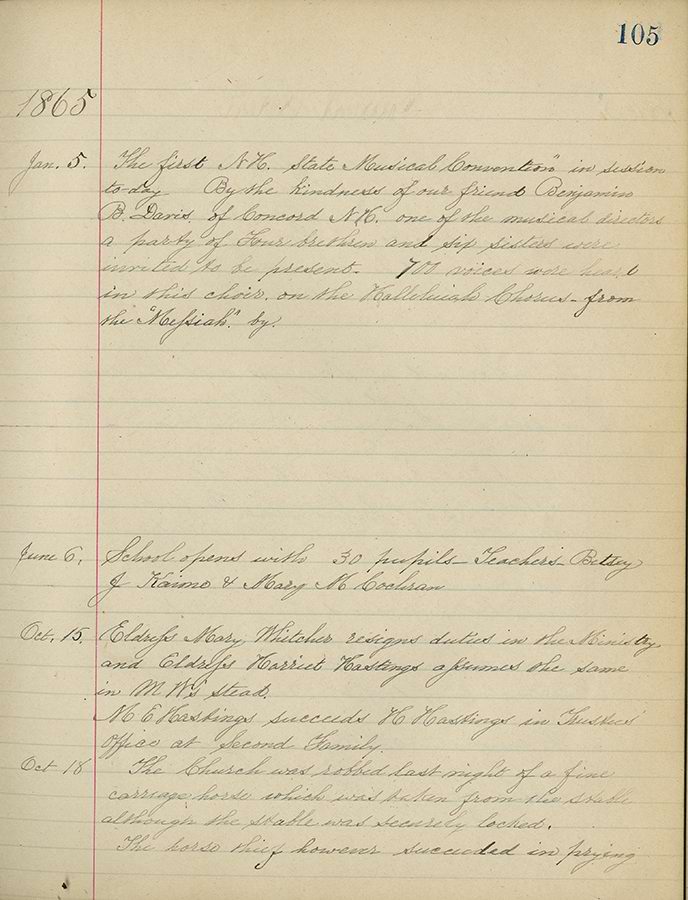 105
1865
Jan. 5. The first N.H. State Musical Convention" in session
to-day By the kindness of our friend Benjamin
B. Davis, of Concord N.H. one of the musical directors
a party of Four brethren and six sisters were
invited to be present. 700 voices were heard
in this choir, on the Hallelujah Chorus - from
the "Messiah". by.
June 6. School opens with 30 pupils - Teachers - Betsey
J Kaime & Mary M Cochran
Oct. 15. Eldress Mary Whitcher resigns duties in the Ministry
and Eldress Harriet Hastings assumes the same
in M W's stead.
M E Hastings succeeds H Hastings in Trustees'
Office at Second Family.
Oct 18 The Church was robbed last night of a fine
carriage horse which was taken from the stable
although the stable was securely locked.
The horse thief however succeeded in prying